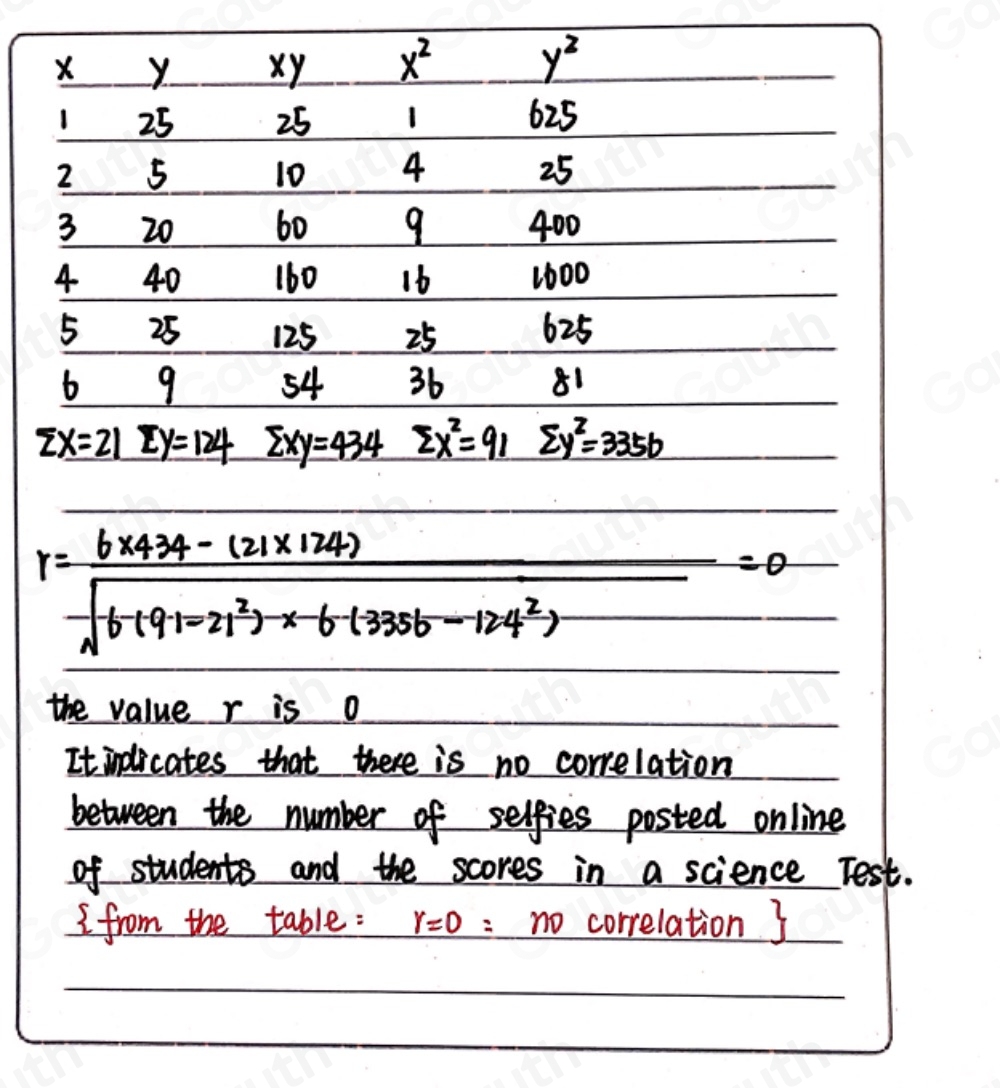 x y xy x² y²
1 25 25 1 625
2 5 10 4 25
3 20 60 9 400
4 40 160 16 1600
5 25 125 25 625
6 9 54 36 81
Σx=21 Σy=124 Σxy=434 Σx²=91 Σy²=3356
r= 6×434-(21×124) / √6(91-21²)×6(3356-124²) =0
the value r is 0
It indicates that there is no correlation
between the number of selfies posted online
of students and the scores in a science Test.
{from the table: r=0: no correlation}
Gauth